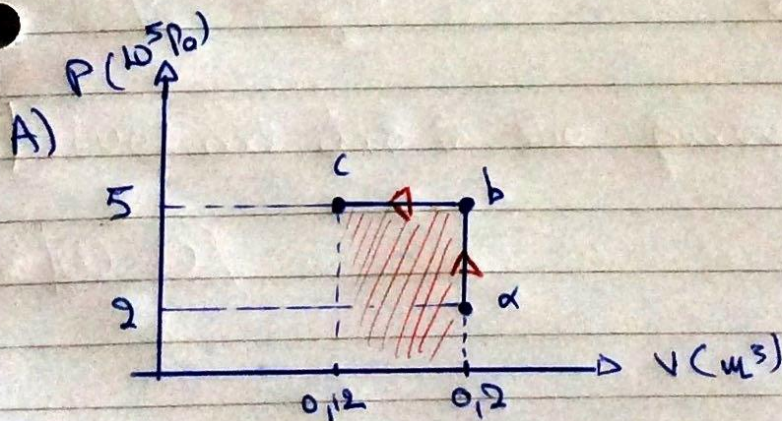 P (10⁵ Pa)
A)
c
b
5
2
α
V (m³)
0,12
0,2